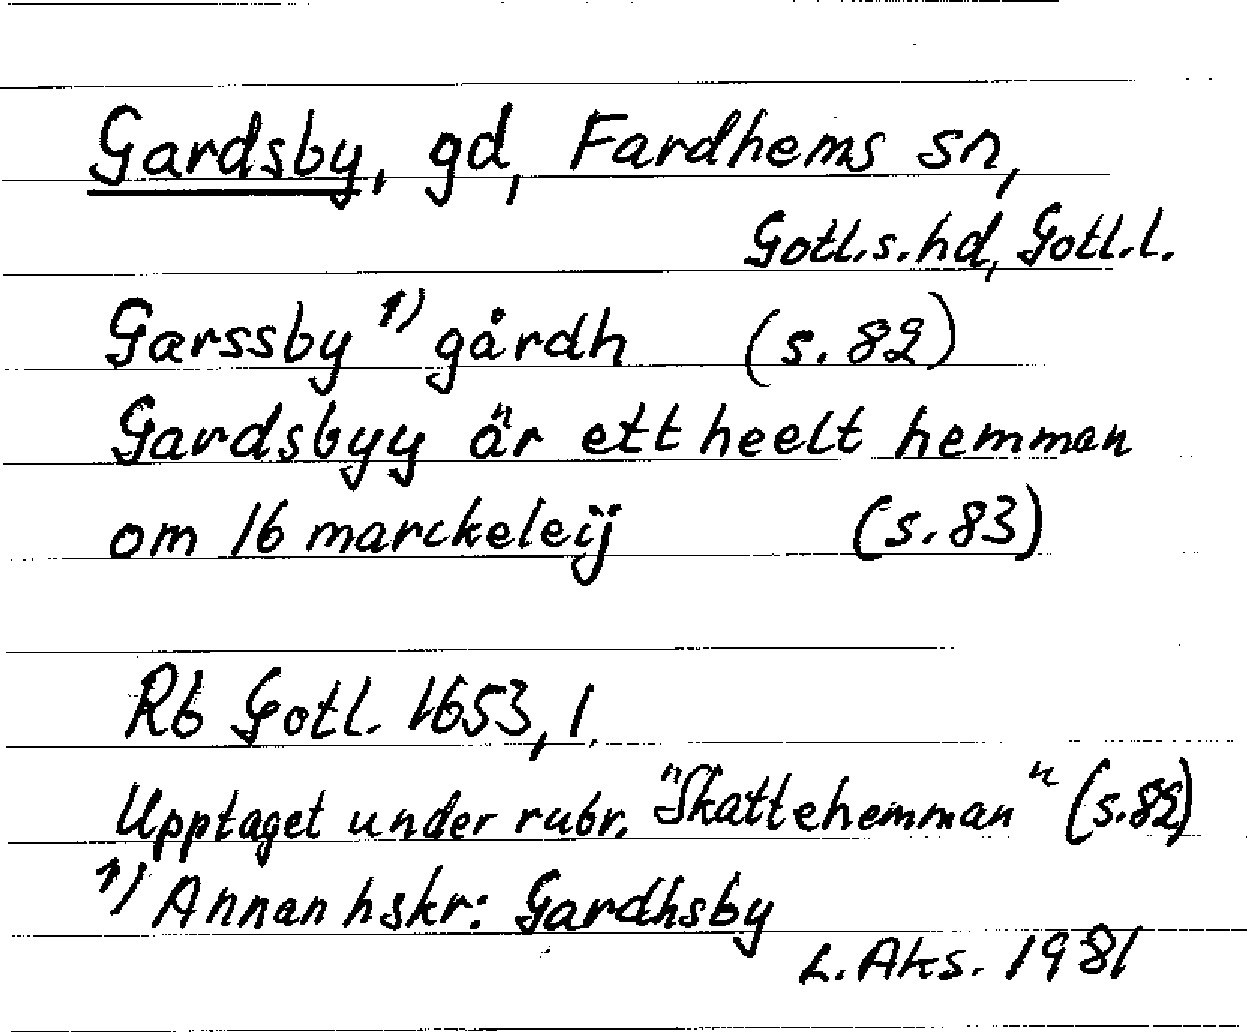 Gardsby, gd, Fardhems sn,
Gotl.s.hd, Gotl.l.
Garssby 1) gårdh (s. 82)
Gardsbyy är ett heelt hemman
om 16 marckeleij (s. 83)
Rb Gotl. 1653, 1.
Upptaget under rubr. "Skattehemman" (s. 82)
1) Annan hskr: Gardhsby
L. Aks. 1981